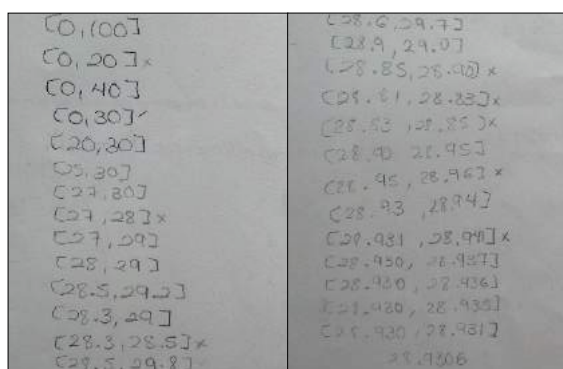 [0,100]
[0,20]×
[0,40]
[0,30]✓
[20,30]
[25,30]
[27,30]
[27,28]×
[27,29]
[28,29]
[28.5,29.2]
[28.3,29]
[28.3,28.5]×
[28.5,29.8]
[28.6,29.7]
[28.9,29.0]
[28.85,28.90]×
[28.81,28.83]×
[28.83,28.85]×
[28.90 28.95]
[28.95,28.96]×
[28.93,28.94]
[28.931,28.94]×
[28.930,28.937]
[28.930,28.936]
[28.930,28.935]
[28.930,28.931]
28.9306